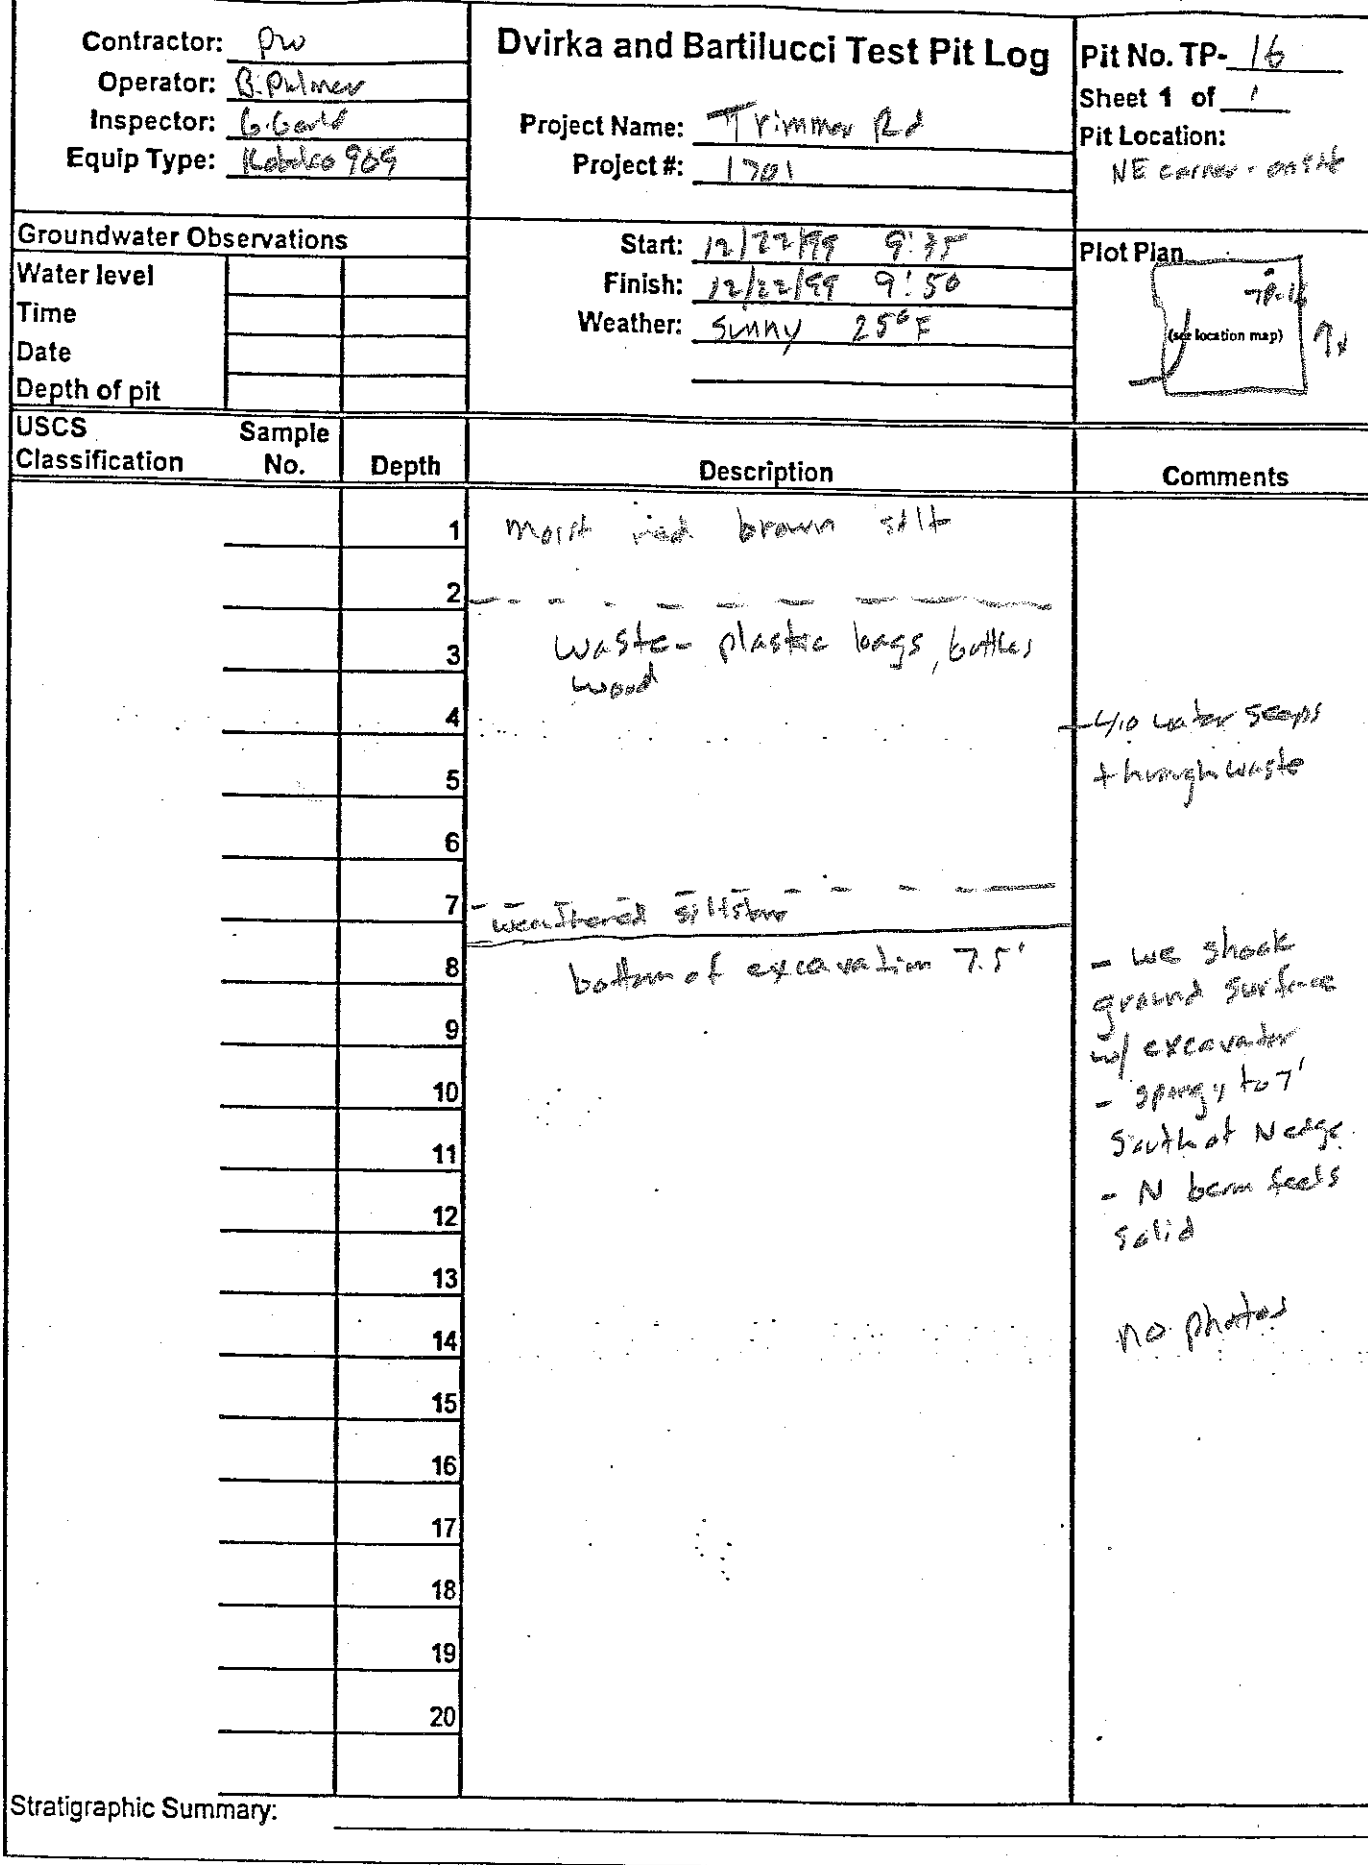 Contractor: PW
Operator: B. Palmer
Inspector:
Equip Type: Kobelco 909
Dvirka and Bartilucci Test Pit Log
Project Name: Trimmer Rd
Project #: 1701
Pit No. TP- 16
Sheet 1 of 1
Pit Location:
NE corner - onsite
Groundwater Observations
Water level
Time
Date
Depth of pit
Start: 12/22/99 9:35
Finish: 12/22/99 9:50
Weather: sunny 25°F
Plot Plan
TP-16
(see location map)
USCS Classification
Sample No.
Depth
Description
Comments
1 moist red brown silt
2
3 waste - plastic bags, bottles
wood
4
water seeps
through waste
5
6
7 weathered siltstone
8 bottom of excavation 7.5'
- we shook
ground surface
w/ excavator
- spongy to 7'
South of N edge
- N berm feels
solid
no photos
9
10
11
12
13
14
15
16
17
18
19
20
Stratigraphic Summary: